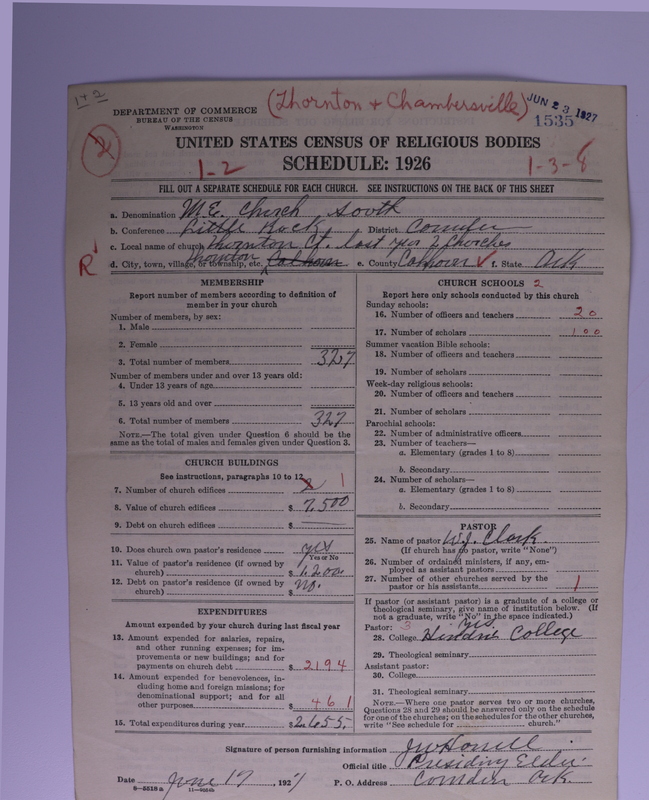 1+2
(Thornton + Chambersville)
JUN 23 1927
1535
DEPARTMENT OF COMMERCE
BUREAU OF THE CENSUS
WASHINGTON
2
UNITED STATES CENSUS OF RELIGIOUS BODIES
1-2 SCHEDULE: 1926 1-3-8
FILL OUT A SEPARATE SCHEDULE FOR EACH CHURCH. SEE INSTRUCTIONS ON THE BACK OF THIS SHEET
a. Denomination M.E. Church South
b. Conference Little Rock District Camden
c. Local name of church Thornton Ct. last year 2 Churches
R d. City, town, village, or township, etc. Thornton Calhoun e. County Calhoun ✓ f. State Ark
MEMBERSHIP
Report number of members according to definition of member in your church
Number of members, by sex:
1. Male
2. Female
3. Total number of members 327
Number of members under and over 13 years old:
4. Under 13 years of age
5. 13 years old and over
6. Total number of members 327
NOTE.—The total given under Question 6 should be the same as the total of males and females given under Question 3.
CHURCH BUILDINGS
See instructions, paragraphs 10 to 12
7. Number of church edifices 2 1
8. Value of church edifices $ 7,500
9. Debt on church edifices $
10. Does church own pastor's residence yes
Yes or No
11. Value of pastor's residence (if owned by church) $ 1,200
12. Debt on pastor's residence (if owned by church) $ no.
EXPENDITURES
Amount expended by your church during last fiscal year
13. Amount expended for salaries, repairs, and other running expenses; for improvements or new buildings; and for payments on church debt $ 2194
14. Amount expended for benevolences, including home and foreign missions; for denominational support; and for all other purposes $ 461
15. Total expenditures during year $ 2655.
CHURCH SCHOOLS 2
Report here only schools conducted by this church
Sunday schools:
16. Number of officers and teachers 20
17. Number of scholars 100
Summer vacation Bible schools:
18. Number of officers and teachers
19. Number of scholars
Week-day religious schools:
20. Number of officers and teachers
21. Number of scholars
Parochial schools:
22. Number of administrative officers
23. Number of teachers—
a. Elementary (grades 1 to 8)
b. Secondary
24. Number of scholars—
a. Elementary (grades 1 to 8)
b. Secondary
PASTOR
25. Name of pastor W.J. Clark.
(If church has no pastor, write "None")
26. Number of ordained ministers, if any, employed as assistant pastors
27. Number of other churches served by the pastor or his assistants 1
If pastor (or assistant pastor) is a graduate of a college or theological seminary, give name of institution below. (If not a graduate, write "No" in the space indicated.)
Pastor: 3 yes
28. College Hendrix College
29. Theological seminary
Assistant pastor:
30. College
31. Theological seminary
NOTE.—Where one pastor serves two or more churches, Questions 28 and 29 should be answered only on the schedule for one of the churches; on the schedules for the other churches, write "See schedule for church."
Signature of person furnishing information J W Harrell
Official title Presiding Elder
Date June 17, 1927 P. O. Address Camden Ark
8-5518 a